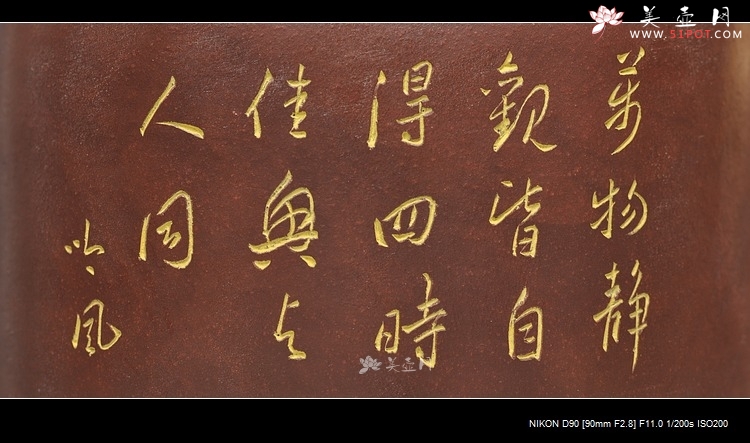 美壶网
WWW.51POT.COM
萬物静
觀皆自
得四時
佳興与
人同
吟风
美壶网
NIKON D90 [90mm F2.8] F11.0 1/200s ISO200